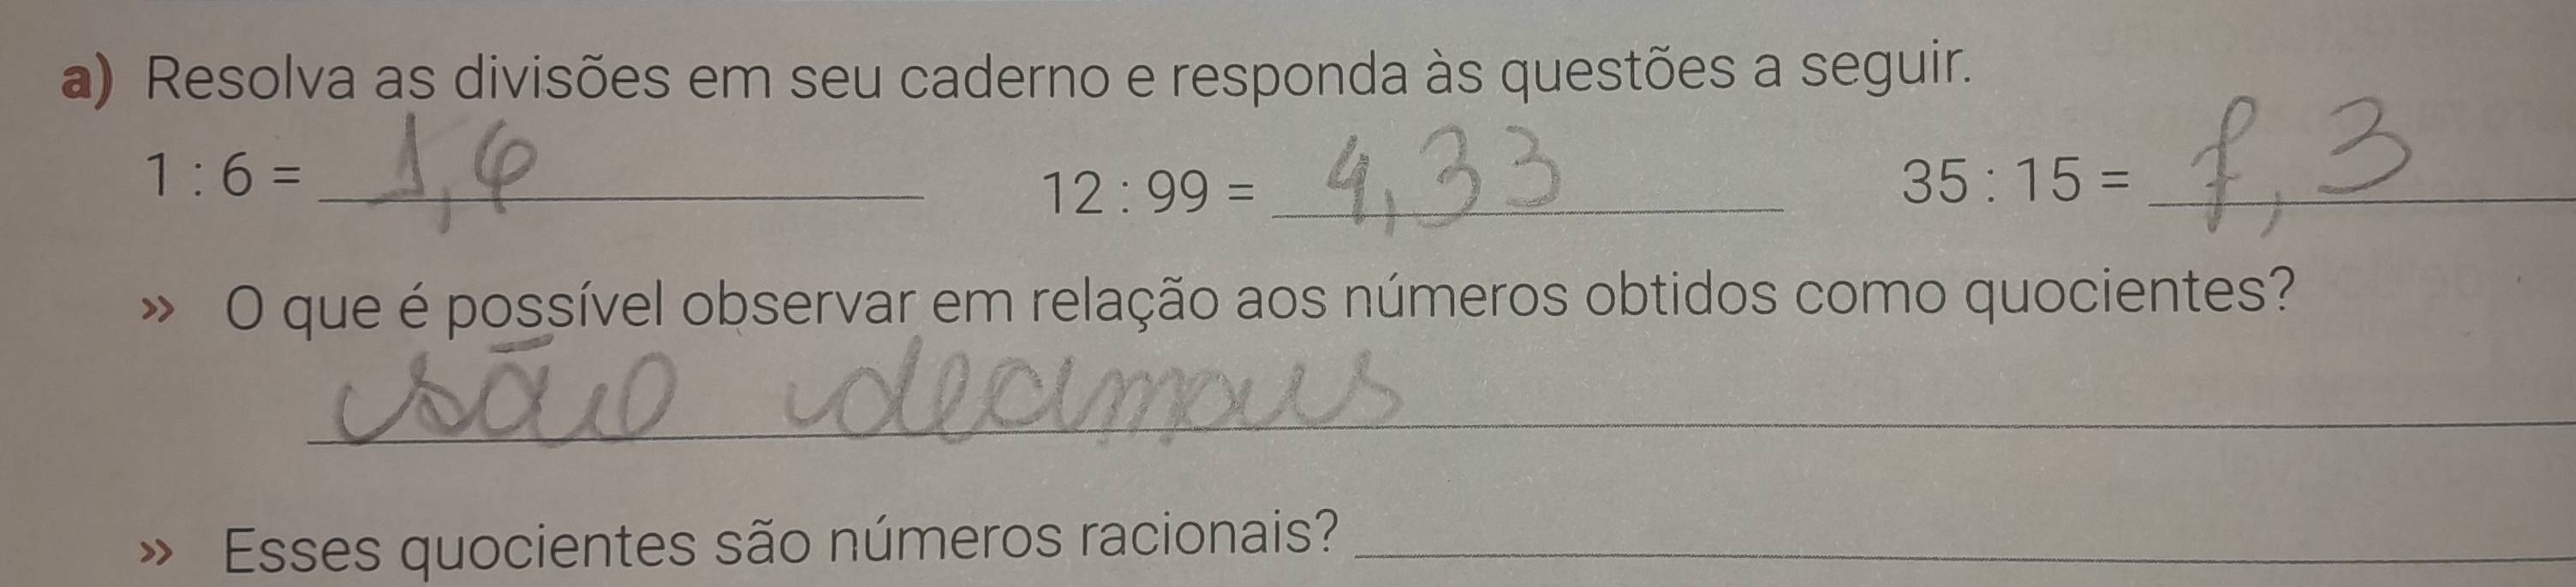 a) Resolva as divisões em seu caderno e responda às questões a seguir.
1 : 6 = 1,6 12 : 99 = 4,33 35 : 15 = 7,3
» O que é possível observar em relação aos números obtidos como quocientes?
são decimais
» Esses quocientes são números racionais?